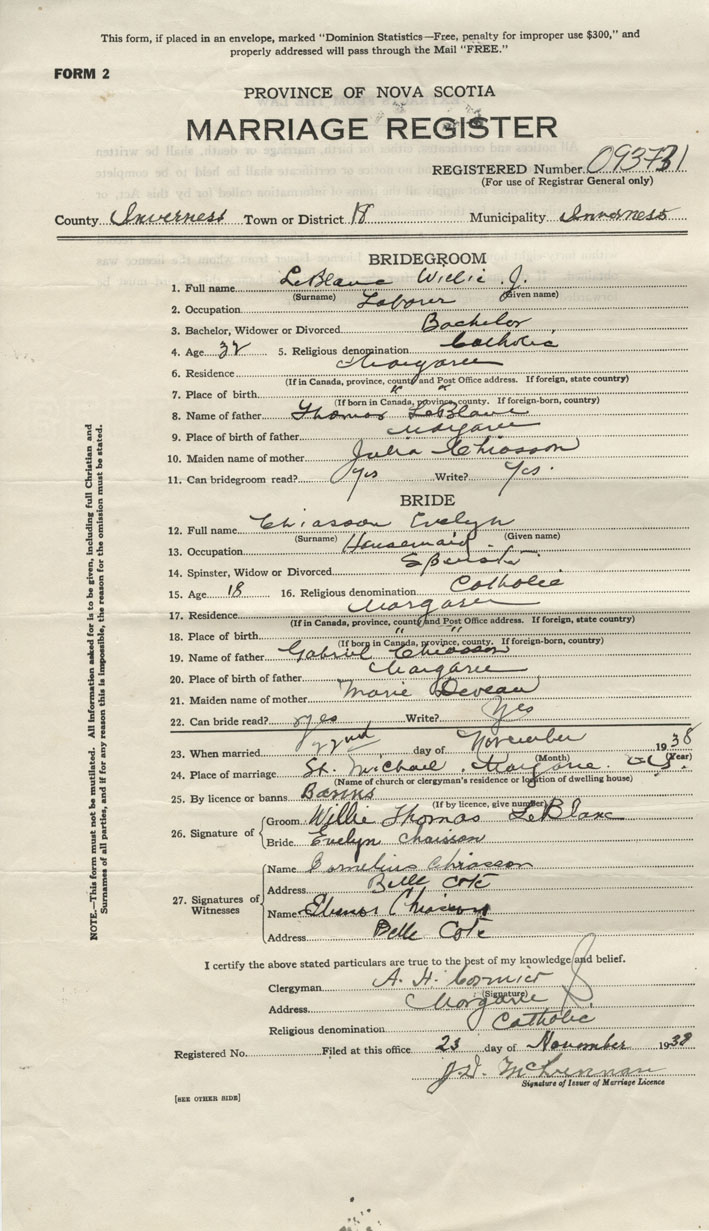 This form, if placed in an envelope, marked "Dominion Statistics—Free, penalty for improper use $300," and
properly addressed will pass through the Mail "FREE."
FORM 2
PROVINCE OF NOVA SCOTIA
MARRIAGE REGISTER
REGISTERED Number
(For use of Registrar General only)
County Inverness Town or District 18 Municipality Inverness
BRIDEGROOM
1. Full name LeBlanc Willie J.
(Surname) (Given name)
2. Occupation Laborer
3. Bachelor, Widower or Divorced Bachelor
4. Age 32 5. Religious denomination Catholic
6. Residence Margaree
(If in Canada, province, county and Post Office address. If foreign, state country)
7. Place of birth " "
(If born in Canada, province, county. If foreign-born, country)
8. Name of father Thomas LeBlanc
9. Place of birth of father Margaree
10. Maiden name of mother Julia Chiasson
11. Can bridegroom read? Yes Write? Yes.
BRIDE
12. Full name Chiasson Evelyn
(Surname) (Given name)
13. Occupation Housemaid
14. Spinster, Widow or Divorced Spinster
15. Age 18 16. Religious denomination Catholic
17. Residence Margaree
(If in Canada, province, county and Post Office address. If foreign, state country)
18. Place of birth " "
(If born in Canada, province, county. If foreign-born, country)
19. Name of father Gabriel Chiasson
20. Place of birth of father Margaree
21. Maiden name of mother Marie Deveau
22. Can bride read? yes Write? Yes
23. When married 22nd day of November 1938
(Month) (Year)
24. Place of marriage St. Michael, Margaree
(Name of church or clergyman's residence or location of dwelling house)
25. By licence or banns Banns
(If by licence, give number)
26. Signature of Groom Willie Thomas LeBlanc
Bride Evelyn Chaisson
27. Signatures of Witnesses
Name Cornelius Chiasson
Address Belle Cote
Name Elenor Chiasson
Address Belle Cote
NOTE.—This form must not be mutilated. All information asked for is to be given, including full Christian and
Surnames of all parties, and if for any reason this is impossible, the reason for the omission must be stated.
I certify the above stated particulars are true to the best of my knowledge and belief.
Clergyman A. H. Cormier
(Signature)
Address Margaree
Religious denomination Catholic
Registered No. Filed at this office 23 day of November 1938
J.D. McLennan
Signature of Issuer of Marriage Licence
[SEE OTHER SIDE]